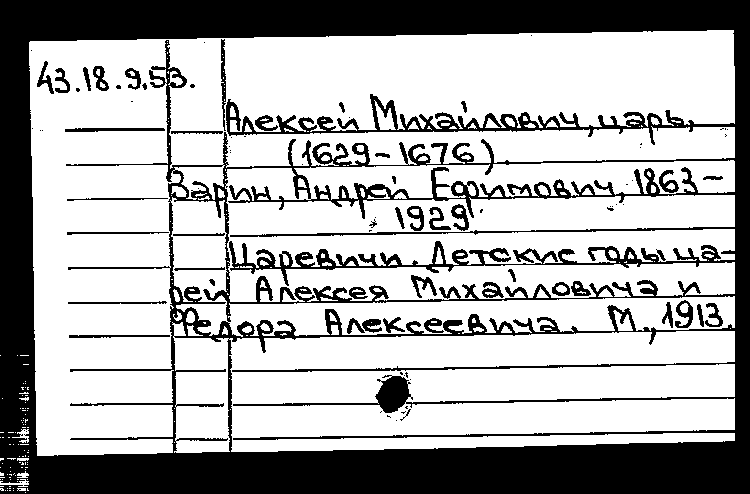 43.18.9.53.
Алексей Михайлович, царь,
(1629-1676).
Зарин, Андрей Ефимович, 1863-
1929.
Царевичи. Детские годы ца-
рей Алексея Михайловича и
Федора Алексеевича. М., 1913.